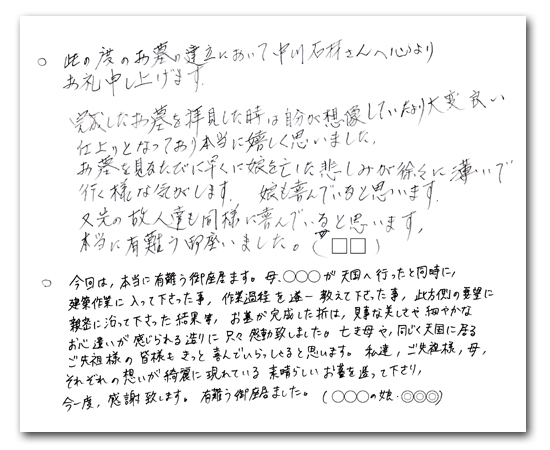 ○ 此の度のお墓の建立において中川石材さんへ心より
お礼申し上げます。
完成したお墓を拝見した時は自分が想像していたより大変良い
仕上りとなっており本当に嬉しく思いました。
お墓を見るたびに早くに娘を亡した悲しみが徐々に薄いで
行く様な気がします。 娘も喜んでいると思います。
又先の故人達も同様に喜んでいると思います。
本当に有難う御座いました。(母 □□)
○ 今回は、本当に有難う御座居ます。母、○○○が天国へ行ったと同時に、
建築作業に入って下さった事、作業過程を逐一教えて下さった事、此方側の要望に
親密に沿って下さった結果、お墓が完成した折は、見事な美しさや細やかな
お心遣いが感じられる造りに只々感動致しました。亡き母や、同じく天国に居る
ご先祖様の皆様もきっと喜んでいらっしゃると思います。私達、ご先祖様、母、
それぞれの想いが綺麗に現れている素晴らしいお墓を造って下さり、
今一度、感謝致します。有難う御座居ました。(○○○の娘・◎◎◎)